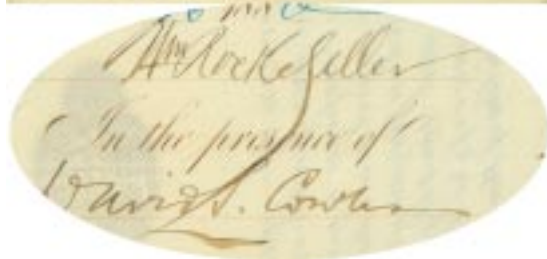 Wm Rockefeller
In the presence of
David S. Cowles